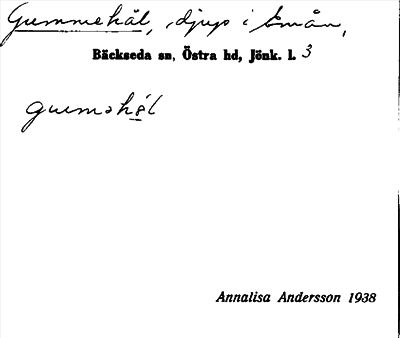 Gummehål, djup i Emån,
Bäckseda sn, Östra hd, Jönk. l. 3
guməhål
Annalisa Andersson 1938